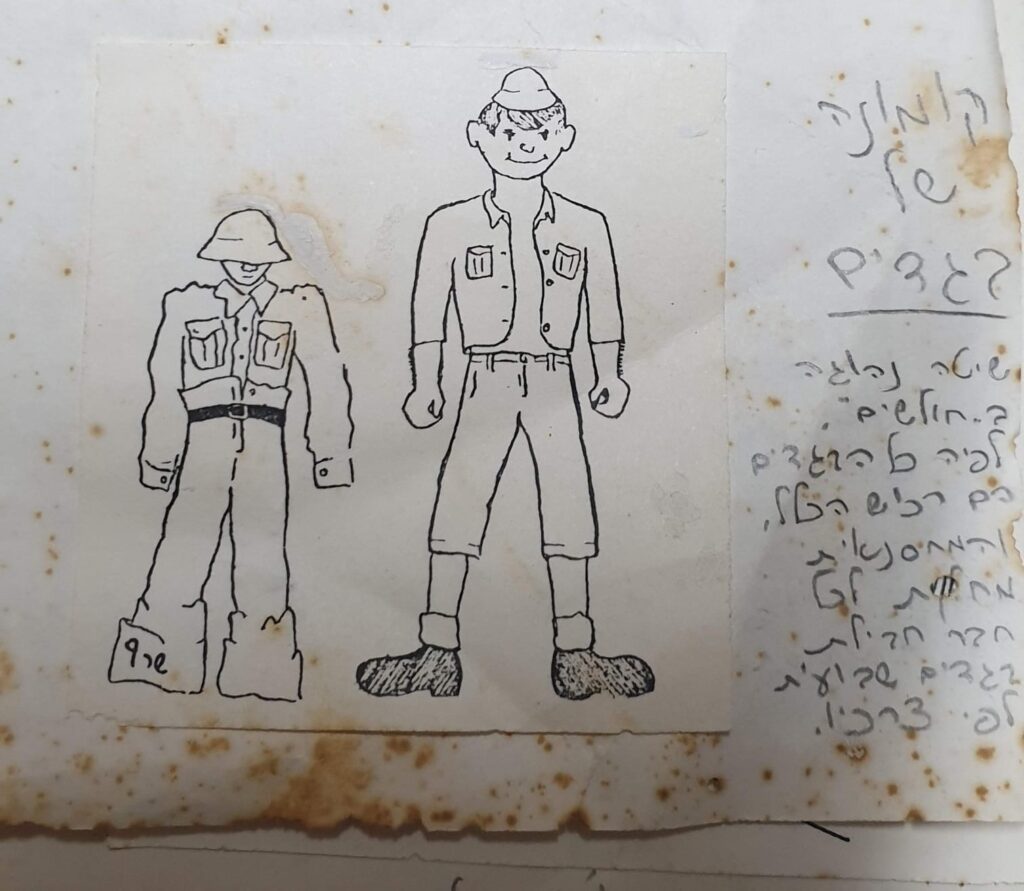 קומונה
של
בגדים
שיטה נהוגה
ב"חולשים".
לפיה כל הבגדים
הם רכוש הכלל,
והמחסנאית
מחלקת לכל
חבר חבילת
בגדים שבועית
לפי צרכיו.
שרף